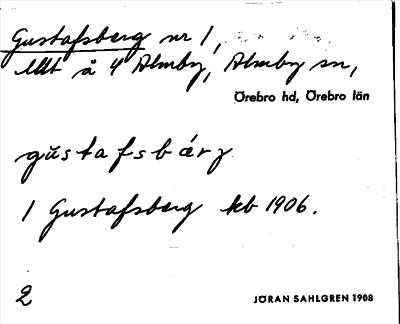 Gustafsberg nr 1,
å 4 Almby, Almby sn,
Örebro hd, Örebro län
gustafsbärj
1 Gustafsberg kb 1906.
2
JÖRAN SAHLGREN 1908